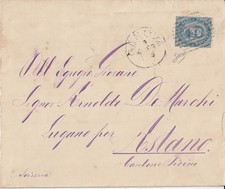 All' Egregio Giovane
Signor Arnoldo De Marchi
Lugano per Astano
Cantone Ticino
Svizzera